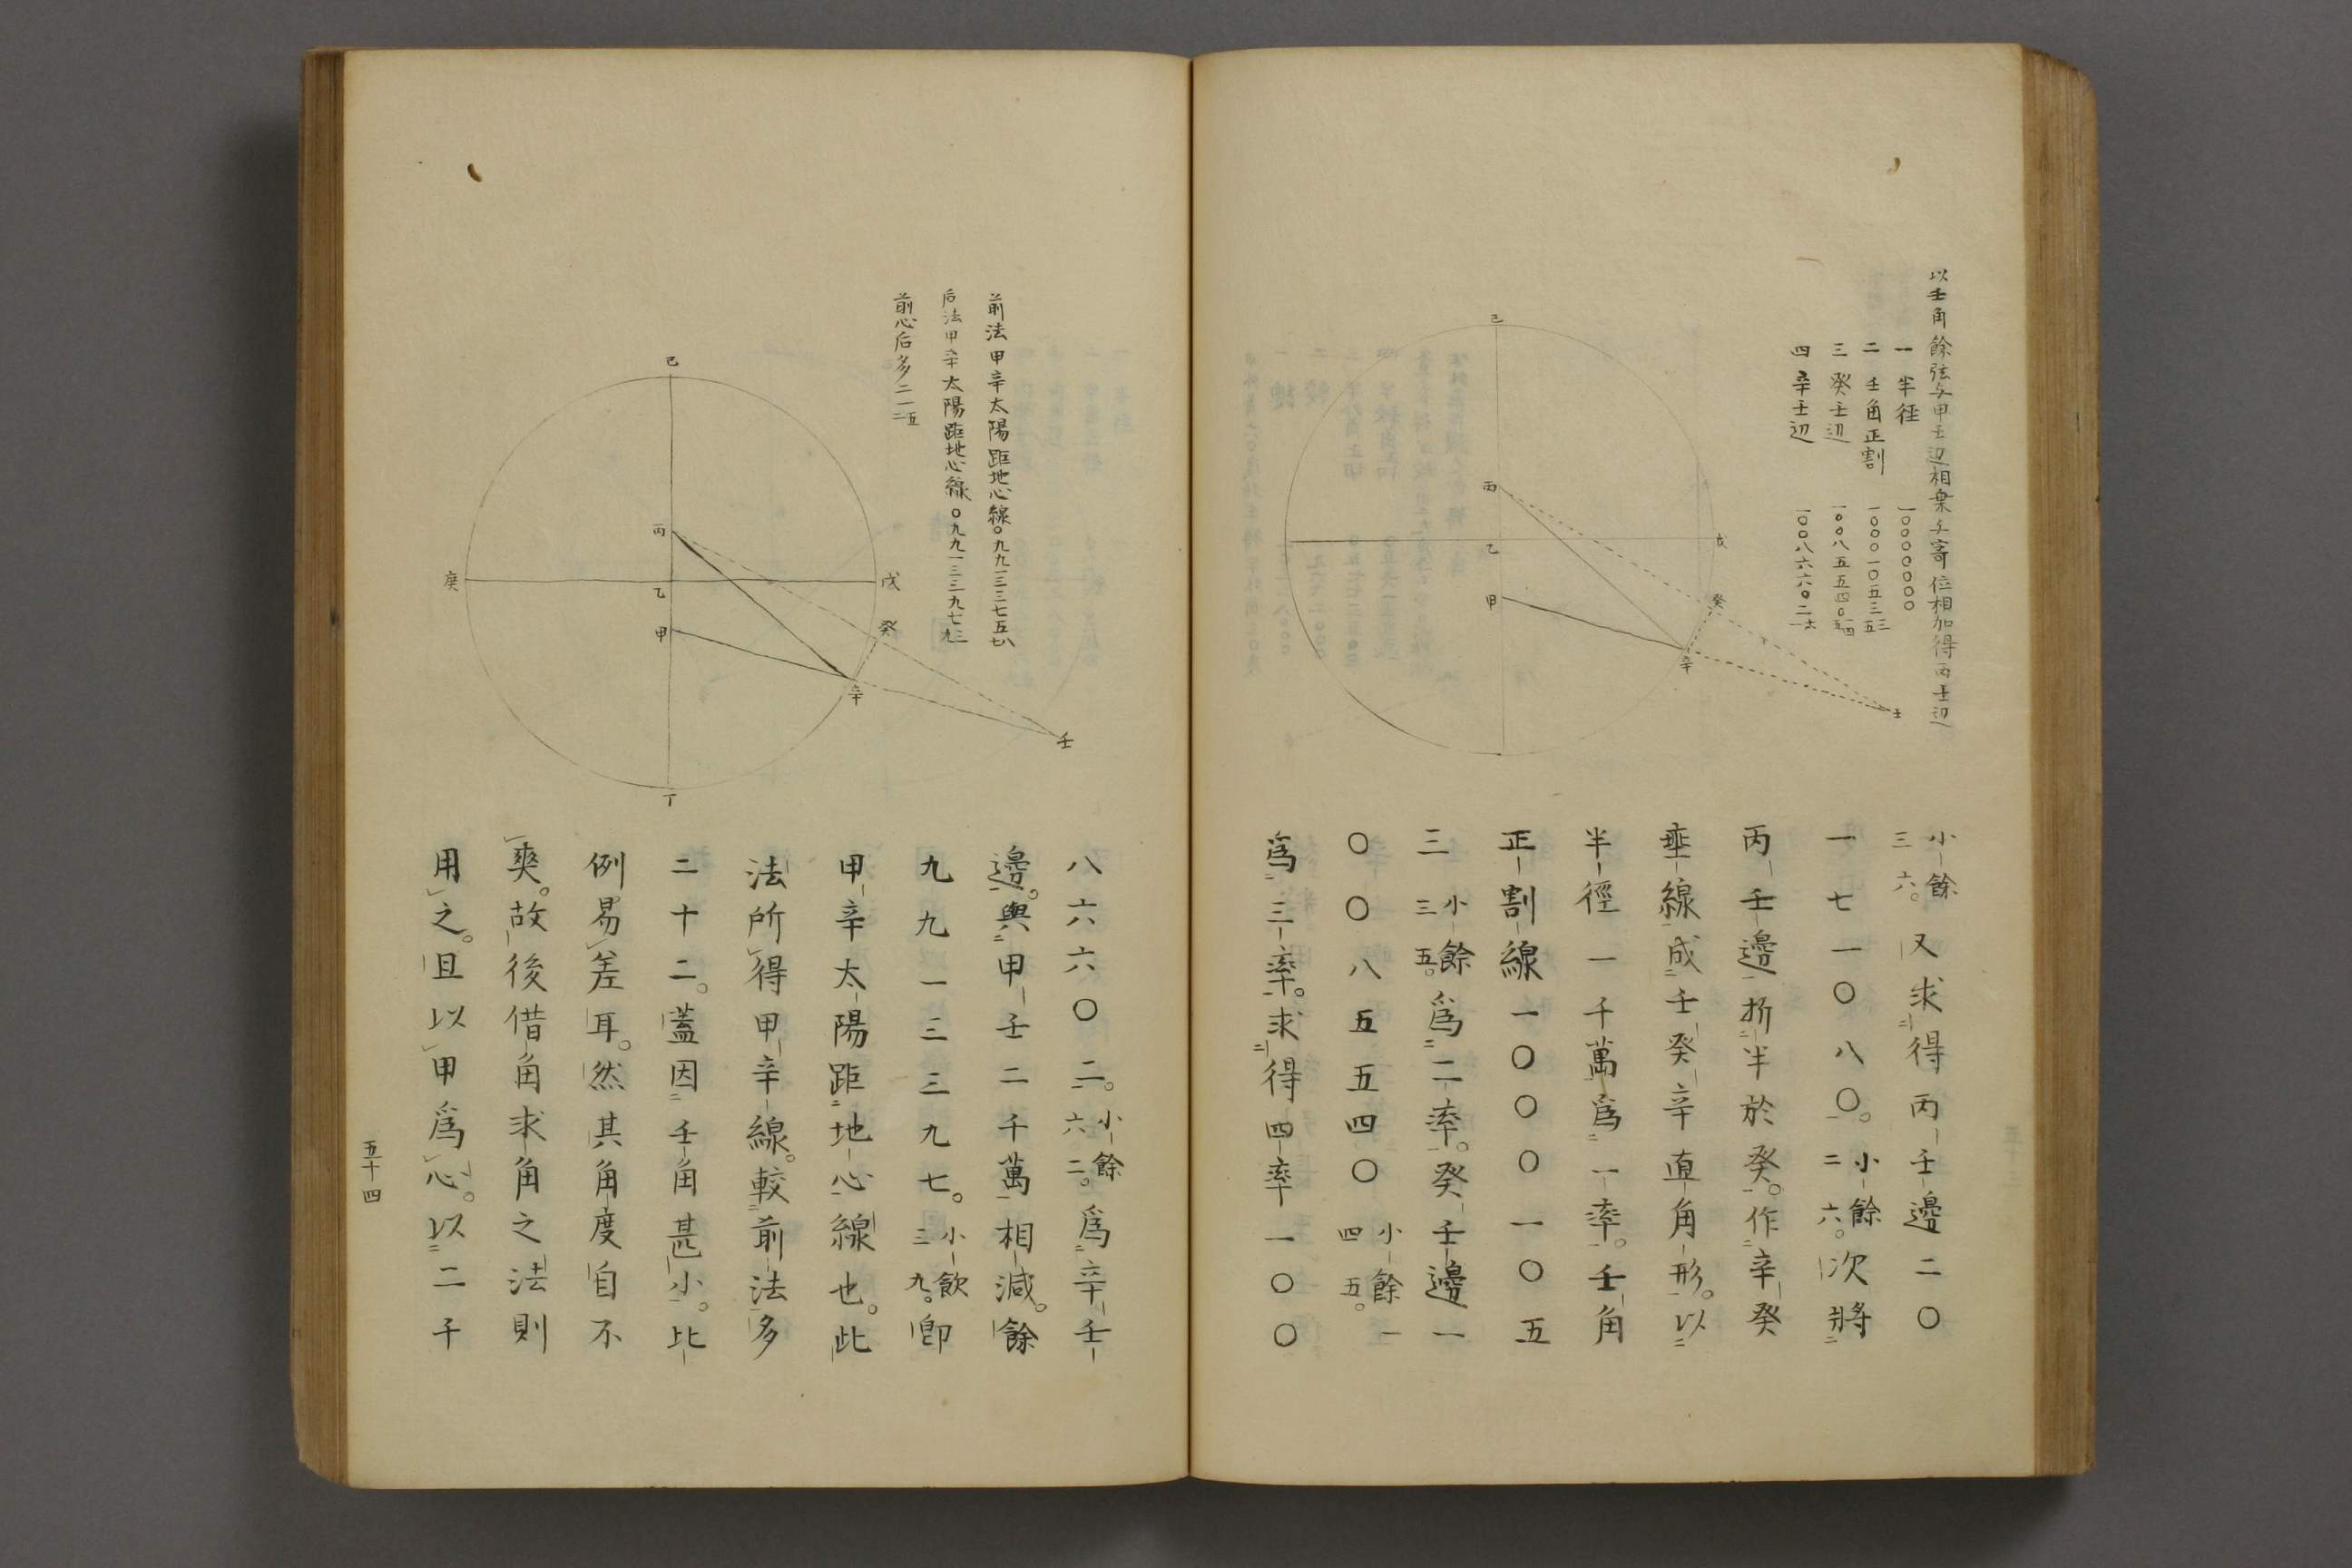 以壬角餘弦与甲壬辺相乗〻寄位相加得丙壬辺
一 半径 一〇〇〇〇〇〇〇
二 壬角正割 一〇〇〇一〇五三三五
三 癸壬辺 一〇〇八五五四〇四五
四 辛壬辺 一〇〇八六六〇二六二
己
丙
戊
乙
甲
癸
辛
壬
小餘三六。又求得丙壬邊二〇
一七一〇八〇。小餘二六。次將
丙壬邊折半於癸。作辛癸
垂線成壬癸辛直角形。以
半徑一千萬爲一率。壬角
正割線一〇〇〇一〇五
三小餘三五。爲二率。癸壬邊一
〇〇八五五四〇小餘一四五。
爲三率。求得四率一〇〇
前法甲辛太陽距地心線〇九九一三三七五七八
后法甲辛太陽距地心線〇九九一三三九七九三
前心后多二一五
己
丙
庚
戊
乙
癸
甲
辛
壬
丁
八六六〇二。小餘六二。爲辛壬
邊。與甲壬二千萬相減。餘
九九一三三九七。小飲三九。卽
甲辛太陽距地心線也。此
法所得甲辛線。較前法多
二十二。蓋因壬角甚小。比
例易差耳。然其角度自不
爽。故後借角求角之法則
用之。且以甲爲心。以二千
五十四